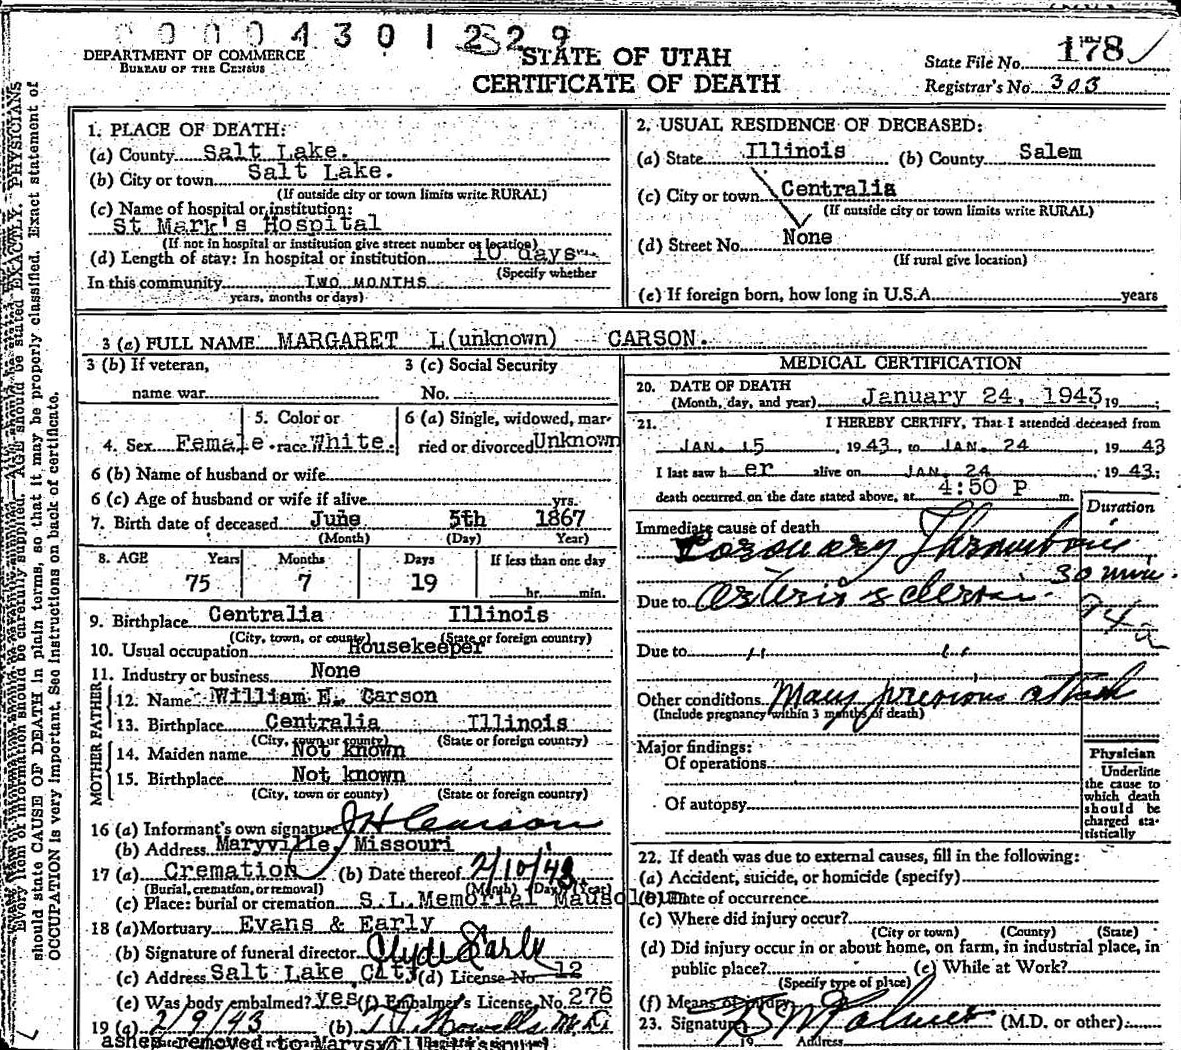 0 0 0 4 3 0 1 2 2 9
DEPARTMENT OF COMMERCE
BUREAU OF THE CENSUS
STATE OF UTAH
CERTIFICATE OF DEATH
State File No. 178
Registrar's No. 303
Every item of information should be carefully supplied. AGE should be stated EXACTLY. PHYSICIANS
should state CAUSE OF DEATH in plain terms, so that it may be properly classified. Exact statement of
OCCUPATION is very important. See instructions on back of certificate.
1. PLACE OF DEATH:
(a) County Salt Lake.
(b) City or town Salt Lake.
(If outside city or town limits write RURAL)
(c) Name of hospital or institution:
St Mark's Hospital
(If not in hospital or institution give street number or location)
(d) Length of stay: In hospital or institution 10 days
(Specify whether
In this community TWO MONTHS
years, months or days)
2. USUAL RESIDENCE OF DECEASED:
(a) State Illinois (b) County Salem
(c) City or town Centralia
(If outside city or town limits write RURAL)
(d) Street No. None
(If rural give location)
(e) If foreign born, how long in U.S.A. years
3 (a) FULL NAME MARGARET L(unknown) CARSON.
3 (b) If veteran,
name war
3 (c) Social Security
No.
4. Sex Female.
5. Color or
race White.
6 (a) Single, widowed, mar-
ried or divorced Unknown
6 (b) Name of husband or wife
6 (c) Age of husband or wife if alive yrs.
7. Birth date of deceased June 5th 1867
(Month) (Day) Year)
8. AGE Years Months Days If less than one day
75 7 19 hr. min.
9. Birthplace Centralia Illinois
(City, town, or county) (State or foreign country)
10. Usual occupation Housekeeper
11. Industry or business None
FATHER
12. Name William E. Carson
13. Birthplace Centralia Illinois
(City, town or county) (State or foreign country)
MOTHER
14. Maiden name Not known
15. Birthplace Not known
(City, town or county) (State or foreign country)
16 (a) Informant's own signature J H Carson
(b) Address Maryville, Missouri
17 (a) Cremation (b) Date thereof 2/10/43
(Burial, cremation, or removal) (Month) (Day) (Year)
(c) Place: burial or cremation S.L.Memorial Mausoleum
18 (a) Mortuary Evans & Early
(b) Signature of funeral director Clyde Early
(c) Address Salt Lake City (d) License No. 12
(e) Was body embalmed? yes (f) Embalmer's License No. 276
19 (a) 2/9/43 (b) Howells M.D.
ashes removed to Missouri
MEDICAL CERTIFICATION
20. DATE OF DEATH
(Month, day, and year) January 24, 1943 19
21. I HEREBY CERTIFY, That I attended deceased from
JAN. 15, 1943, to JAN. 24, 1943
I last saw her alive on JAN. 24 1943;
death occurred on the date stated above, at 4:50 P m.
Duration
Immediate cause of death
Coronary Thrombosis
30 min.
Due to Arteriosclerosis
94a
Due to " "
Other conditions Many previous attack
(Include pregnancy within 3 months of death)
Major findings:
Of operations
Of autopsy
Physician
Underline
the cause to
which death
should be
charged sta-
tistically
22. If death was due to external causes, fill in the following:
(a) Accident, suicide, or homicide (specify)
(b) Date of occurrence
(c) Where did injury occur?
(City or town) (County) (State)
(d) Did injury occur in or about home, on farm, in industrial place, in
public place? (e) While at Work?
(Specify type of place)
(f) Means of injury
23. Signature (M.D. or other)
19 Address